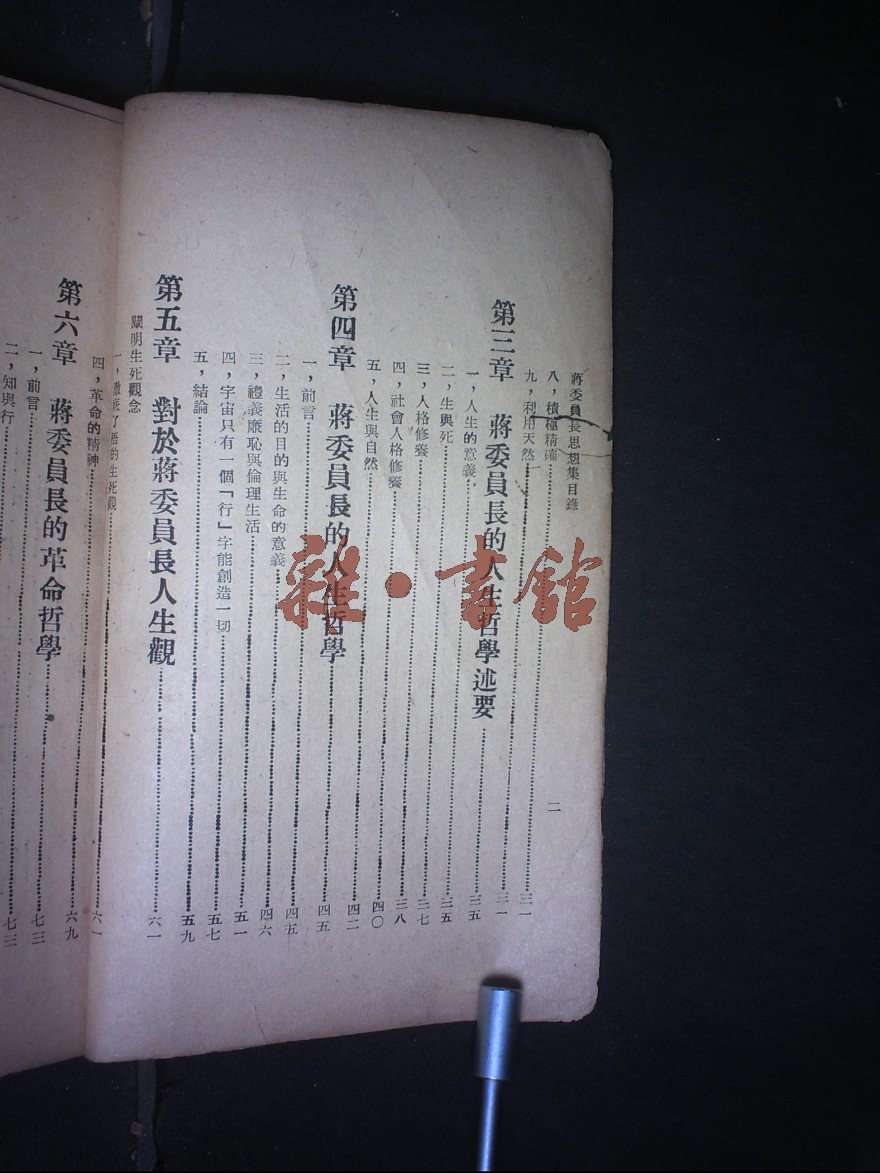 蔣委員長思想集目錄 二
八,積極精確……三一
九,利用天然……三一
第三章 蔣委員長的人生哲學述要……三五
一,人生的意義……三五
二,生與死……三七
三,人格修養……三八
四,社會人格修養……四〇
五,人生與自然……四二
第四章 蔣委員長的人生哲學……四五
一,前言……四五
二,生活的目的與生命的意義……四六
三,禮義廉恥與倫理生活……五一
四,宇宙只有一個「行」字能創造一切……五七
五,結論……五九
第五章 對於蔣委員長人生觀……六一
闡明生死觀念
一,徹底了悟的生死觀……六一
四,革命的精神……六九
第六章 蔣委員長的革命哲學……七三
一,前言……七三
二,知與行……
雜·書館